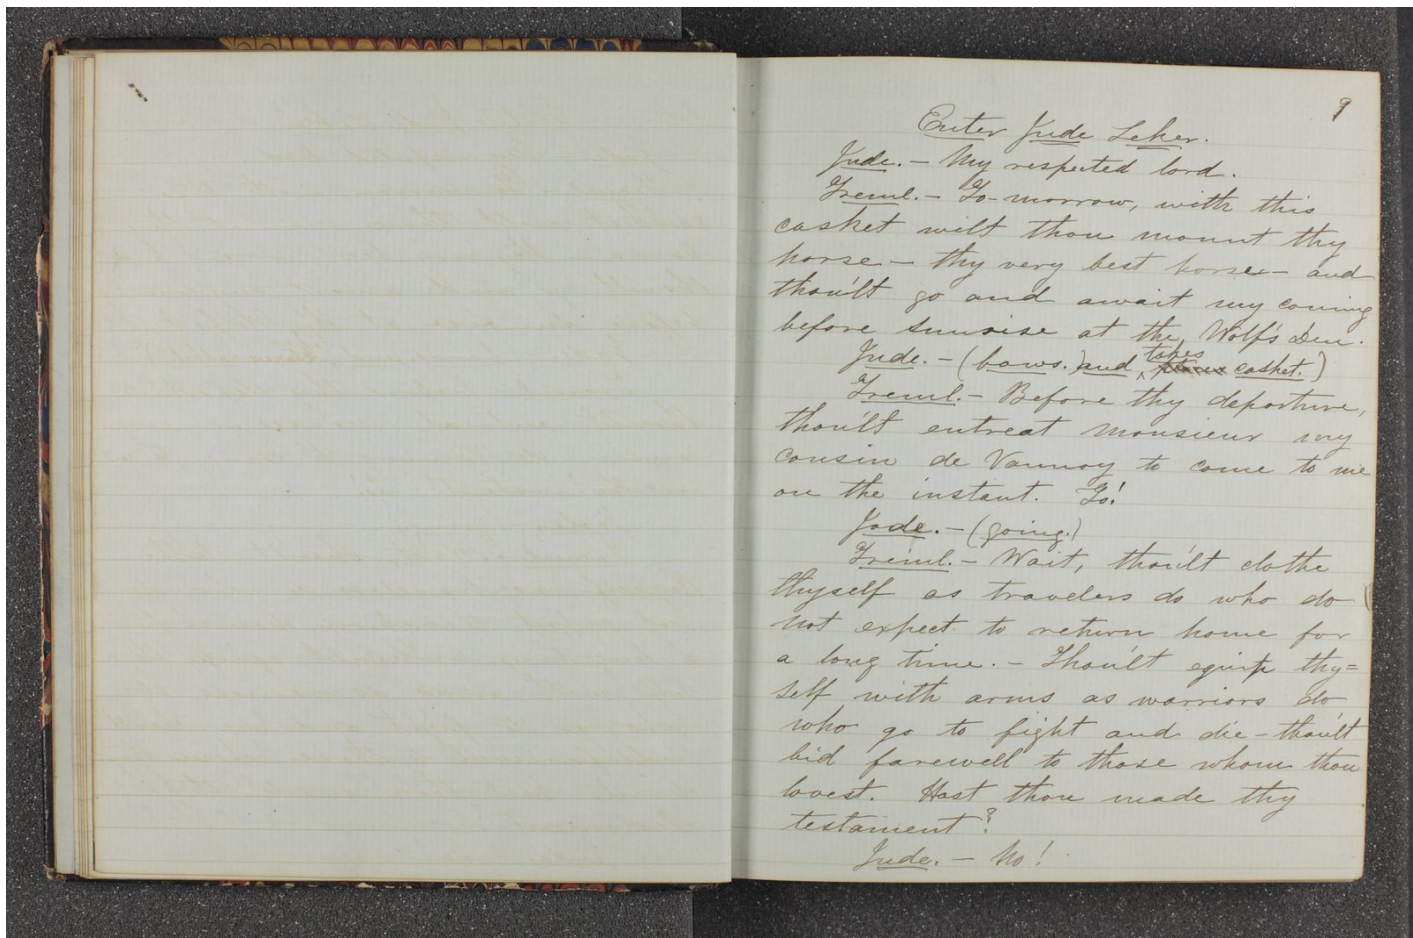 9
Enter Jude Leker.
Jude. — My respected lord.
Treml. — To-morrow, with this
casket wilt thou mount thy
horse — thy very best horse — and
thou'lt go and await my coming
before sunrise at the Wolf's Den.
Jude. — (bows.) and takes casket.)
Treml. — Before thy departure,
thou'lt entreat monsieur my
cousin de Vaunoy to come to me
on the instant. Go!
Jude. — (going.)
Treml. — Wait, thou'lt clothe
thyself as travelers do who do
not expect to return home for
a long time. — Thou'lt equip thy=
self with arms as warriors do
who go to fight and die — thou'lt
bid farewell to those whom thou
lovest. Hast thou made thy
testament?
Jude. — No!